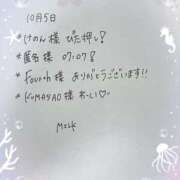 10月5日
*けのん様 ぴた押し!
*匿名様 07:07!
*Fourth様 ありがとうございます!!
*KUMASAO様 おーしい♡
Milk